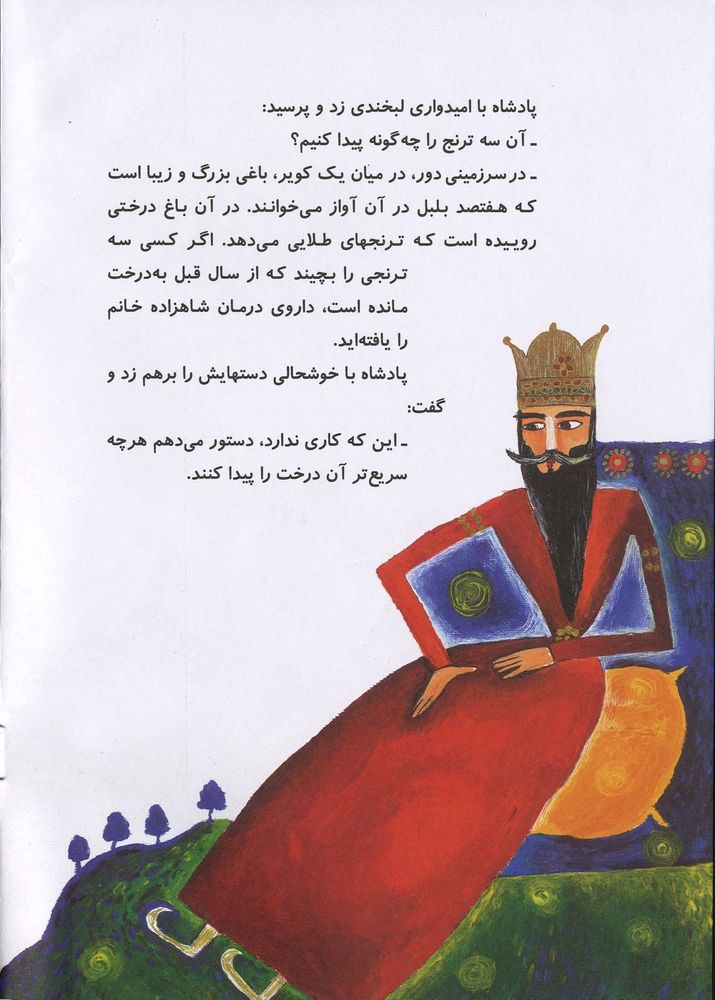 پادشاه با امیدواری لبخندی زد و پرسید:
ـ آن سه ترنج را چه‌گونه پیدا کنیم؟
ـ در سرزمینی دور، در میان یک کویر، باغی بزرگ و زیبا است
که هفتصد بلبل در آن آواز می‌خوانند. در آن باغ درختی
روییده است که ترنجهای طلایی می‌دهد. اگر کسی سه
ترنجی را بچیند که از سال قبل به‌درخت
مانده است، داروی درمان شاهزاده خانم
را یافته‌اید.
پادشاه با خوشحالی دستهایش را برهم زد و
گفت:
ـ این که کاری ندارد، دستور می‌دهم هرچه
سریع‌تر آن درخت را پیدا کنند.